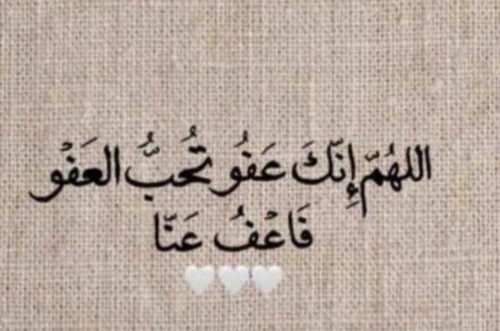 اللهُمّ إِنّكَ عَفُو تُحبُّ العَفْو
فَاعْفُ عَنّا
🤍🤍🤍